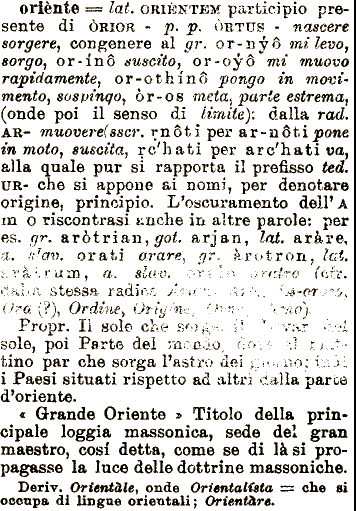 oriènte = lat. ORIÈNTEM participio pre-
sente di ÒRIOR - p. p. ÒRTUS - nascere
sorgere, congenere al gr. or-nyô mi levo,
sorgo, or-inô suscito, or-oyô mi muovo
rapidamente, or-othinô pongo in movi-
mento, sospingo, òr-os meta, parte estrema,
(onde poi il senso di limite): dalla rad.
AR- muovere (sscr. ṛnôti per ar-nôti pone
in moto, suscita, ṛc'hati per arc'hati va,
alla quale pur si rapporta il prefisso ted.
UR- che si appone ai nomi, per denotare
origine, principio. L'oscuramento dell'A
in o riscontrasi anche in altre parole: per
es. gr. aròtrian, got. arjan, lat. aràre,
a. slav. orati arare, gr. àrotron, lat.
aràtrum, a. slav. aratro (cfr.
dalla stessa radice
Ora (?), Ordine, Origine,
Propr. Il sole che sorge, il levar del
sole, poi Parte del mondo, dove il mat-
tino par che sorga l'astro del giorno; indi
i Paesi situati rispetto ad altri dalla parte
d'oriente.
« Grande Oriente » Titolo della prin-
cipale loggia massonica, sede del gran
maestro, cosí detta, come se di là si pro-
pagasse la luce delle dottrine massoniche.
Deriv. Orientàle, onde Orientalísta = che si
occupa di lingue orientali; Orientàre.